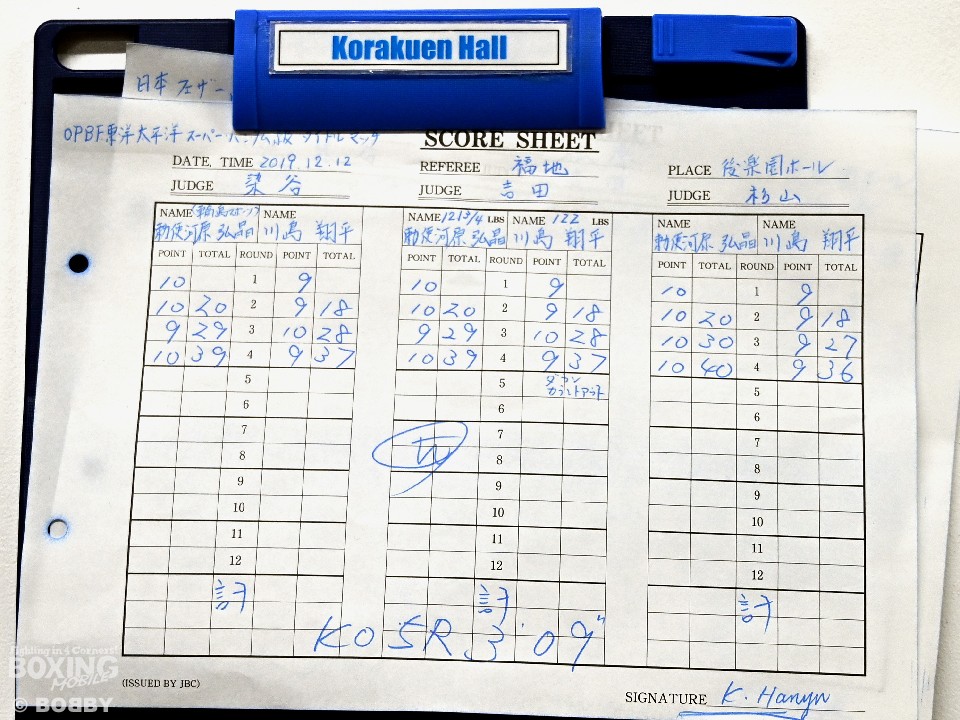 Korakuen Hall
日本 フェザー
OPBF東洋太平洋スーパーバンタム級タイトルマッチ
SCORE SHEET
DATE, TIME 2019.12.12 REFEREE 福地 PLACE 後楽園ホール
JUDGE 染谷 JUDGE 吉田 JUDGE 杉山
NAME NAME NAME 121 3/4 LBS NAME 122 LBS NAME NAME
勅使河原 弘晶 川島 翔平 勅使河原 弘晶 川島 翔平 勅使河原 弘晶 川島 翔平
POINT TOTAL ROUND POINT TOTAL POINT TOTAL ROUND POINT TOTAL POINT TOTAL ROUND POINT TOTAL
10 1 9 10 1 9 10 1 9
10 20 2 9 18 10 20 2 9 18 10 20 2 9 18
9 29 3 10 28 9 29 3 10 28 10 30 3 9 27
10 39 4 9 37 10 39 4 9 37 10 40 4 9 36
5 5 ダウン カウントアウト 5
6 6 6
7 7 7
8 8 8
9 9 9
10 10 10
11 11 11
12 12 12
計 計 計
KO 5R 3'09"
(ISSUED BY JBC)
SIGNATURE
Fighting in 4 Corners!
BOXING
MOBILE
© BOBBY